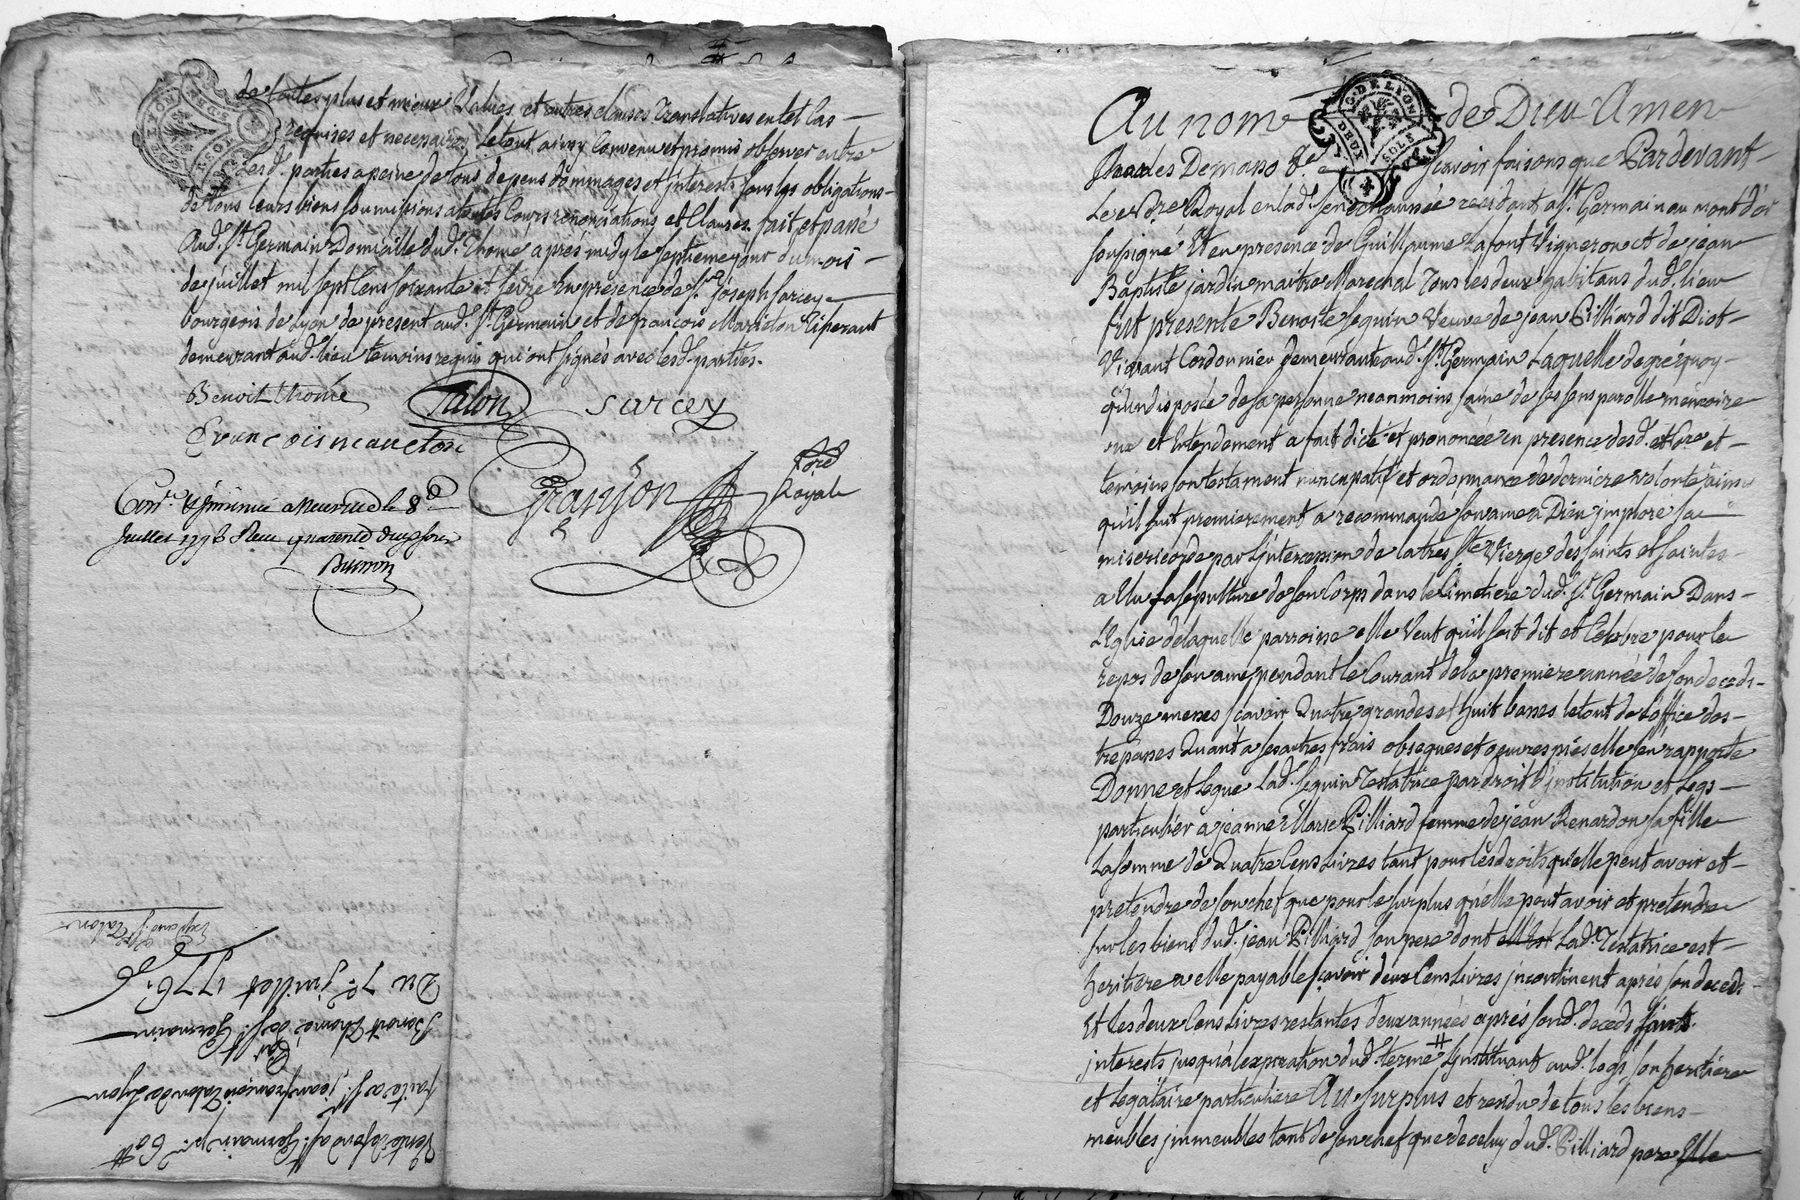 de toutes plus et mieux Values et autres clauses translatives en tel Cas
requises et necessaires, le tout ainsy Convenu et promis observer entre
Lesd. parties a peine de tous depens dommages et interests sous les obligations
de tous leurs biens soumissions a toutes Cours renonciations et Clauses fait et passé
Aud. St. Germain Domicille dud. Thomé apres midy le septieme jour du mois
de juillet mil sept Cens soixante et seize En presence de Sr. Joseph sarcey
bourgeois de Lyon de present aud. St. Germain et de francois Marieton Tisserant
demeurant aud. lieu temoins requis qui ont signés avec lesd. parties.
Benoit thomé Talon sarcey
francois marieton
Granjon
Nore
Royal
Con.le & a Neuville le 8e
Juillet 1776 Recu quarente deux sols
DE LYON
G. DE LYON
DEUX SOLS
Au nom de Dieu Amen
Charles Demans &c scavoir faisons que Pardevant
Le Nore Royal en lad. senechaussée residant a St. Germain au mont d'or
soussigné Et en presence de Guillaume Lafont Vigneron et de jean
Baptiste jardin maitre Marechal Tous les deux habitans dud. lieu
fut presente Benoite Seguin Veuve de jean Pilliard dit Diot
Vivant Cordonnier demeurante aud. St. Germain Laquelle de gré quoy
qu'indisposée de sa personne neanmoins saine de ses sens parolle memoire
oue et Entendement a fait dicté et prononcée en presence desd. et
temoins son testament nuncupatif et ordonnance de derniere volonté ainsi
qu'il suit premierement a recommandé son ame a Dieu imploré sa
misericorde par l'intercession de la tres Ste Vierge des saints et saintes
a Elu sa sepulture de son Corps dans le Cimetiere dud. St. Germain Dans
L'Eglise de laquelle parroisse elle Veut qu'il soit dit et Celebre pour le
repos de son ame pendant le Courant de la premiere année de son deceds
Douze messes scavoir Quatre grandes et huit basses le tout de l'office des
trepasses Quant a ses autres frais obseques et oeuvres pies elle s'en rapporte
Donne et Legue Lad. Seguin Testatrice par droit d'institution et Legs
particulier a jeanne Marie Pilliard femme de jean Renardon sa fille
La somme de Quatre Cens Livres tant pour les droits qu'elle peut avoir et
pretendre de son chef que pour le surplus qu'elle peut avoir et pretendre
sur les biens dud. jean Pilliard son pere dont Lad. Testatrice est
heritiere a elle payable scavoir deux Cens Livres incontinent après son deceds
Et les deux Cens Livres restantes deux années après sond. deceds sans
interests jusqu'a l'expiration dud. terme # L'instituant aud. legs son heritiere
et Legataire particuliere Au surplus et residu de tous les biens
meubles immeubles tant de son chef que de celuy dud. Pilliard pere Elle
Vente de fond a St. Germain pr. 60#
faite a Sr. jean francois Talon de Lyon
Par
Benoit Thomé de St. Germain
Du 7e juillet 1776.
Expédié Sr. Talon